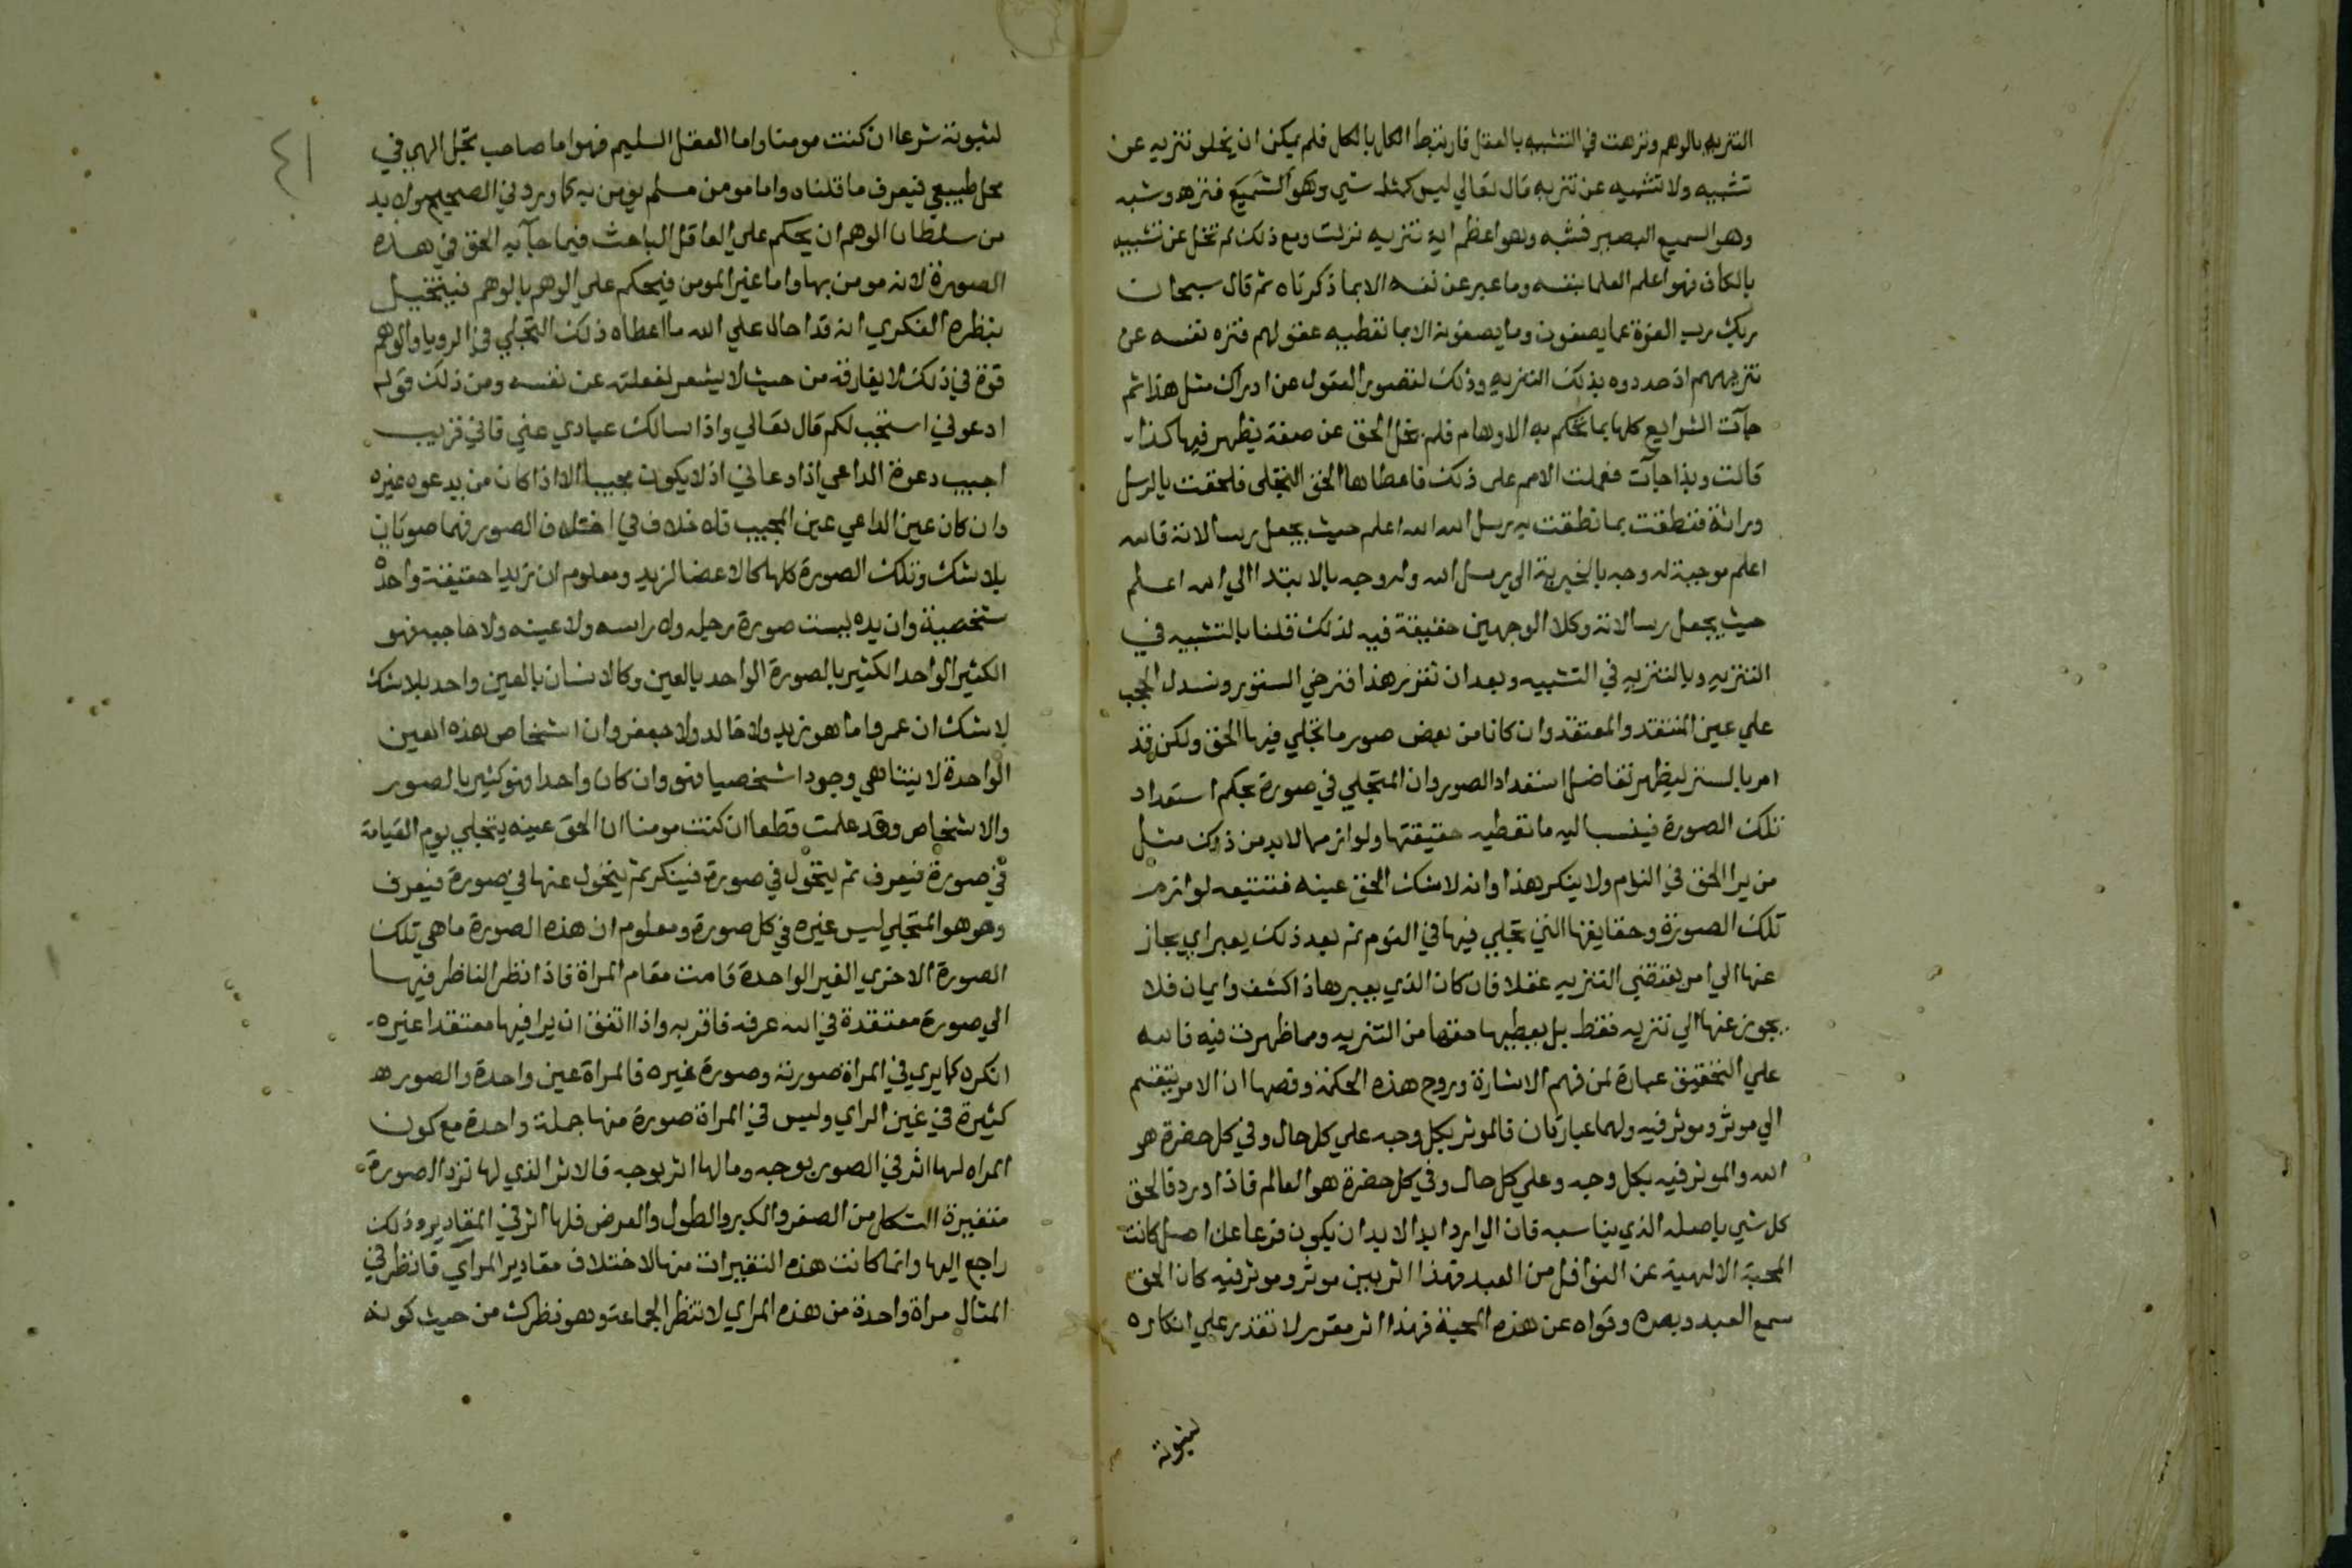 التنزيه بالوهم ونزهت في التشبيه بالعقل فارتبط الكل بالكل فلم يمكن ان يخلو تنزيه عن
تشبيه ولا تشبيه عن تنزيه قال تعالي ليس كمثله شي وهو السميع فنزه وشبه
وهو السميع البصير فشبه وهو اعظم اية تنزيه نزلت ومع ذلك لم تخل عن تشبيه
بالكاف فهو اعلم العلما بنفسه وما عبر عن نفسه الا بما ذكرناه ثم قال سبحان
ربك رب العزة عما يصفون وما يصفونه الا بما تعطيه عقولهم فنزه نفسه عن
تنزيههم اذ حددوه بذلك التنزيه وذلك لقصور العقول عن ادراك مثل هذا ثم
جآت الشرايع كلها بما تحكم به الاوهام فلم يخل الحق عن صفة يظهر فيها كذا
قالت وبذا جآت فعملت الامم على ذلك فاعطاها الحق التجلى فلحقت بالرسل
وراثة فنطقت بما نطقت به رسل الله الله اعلم حيث يجعل رسالاته فالله
اعلم موجبة له وجه بالخبرية الى رسل الله وله وجه بالابتدا الي الله اعلم
حيث يجعل رسالاته وكلا الوجهين حقيقة فيه لذلك قلنا بالتشبيه في
التنزيه وبالتنزيه في التشبيه وبعد ان تقرر هذا فنرخي الستور ونسدل الحجب
علي عين المنتقد والمعتقد وان كانا من بعض صور ما تجلي فيها الحق ولكن قد
امر بالستر ليظهر تفاضل استعداد الصور وان المتجلي في صورة بحكم استعداد
تلك الصورة فينسب اليه ما تعطيه حقيقتها ولوازمها لابد من ذلك مثل
من يرا الحق في النوم ولا ينكر هذا وانه لا شك الحق عينه فتتبعه لوازم
تلك الصورة وحقايقها التي تجلي فيها في النوم ثم بعد ذلك يعبر اي يجاز
عنها الي امر يقتضي التنزيه عقلا فان كان الذي يعبرها ذا كشف وايمان فلا
يجوز عنها الي تنزيه فقط بل يعطيها حقها من التنزيه ومما ظهرت فيه فالله
علي التحقيق عبارة لمن فهم الاشارة وروح هذه الحكمة وفصها ان الامر ينقسم
الي موثر وموثر فيه ولهما عبارتان فالموثر بكل وجه علي كل حال وفي كل حضرة هو
الله والموثر فيه بكل وجه وعلي كل حال وفي كل حضرة هو العالم فاذا ورد فالحق
كل شي باصله الذي يناسبه فان الوارد ابدا لابد ان يكون فرعا عن اصل كانت
المحبة الالهية عن النوافل من العبد فهذا اثر بين موثر وموثر فيه كان الحق
سمع العبد وبصره وقواه عن هذه المحبة فهذا اثر مقرر لا تقدر علي انكاره
لثبوته
٤١
لثبوته شرعا ان كنت مومنا واما العقل السليم فهو اما صاحب تجل الهي في
مجل طبيعي فيعرف ما قلناه واما مومن مسلم يومن به كما ورد في الصحيح ولا بد
من سلطان الوهم ان يحكم علي العاقل الباحث فيما جآ به الحق في هذه
الصورة لانه مومن بها واما غير المومن فيحكم علي الوهم بالوهم فيتخيل
بنظره الفكري انه قد احال علي الله ما اعطاه ذلك التجلي في الرويا والوهم
قوة في ذلك لا يفارقه من حيث لا يشعر لغفلته عن نفسه ومن ذلك قوله
ادعوني استجب لكم قال تعالي واذا سالك عبادي عني فاني قريب
اجيب دعوة الداعي اذا دعاني اذ لا يكون مجيبا الا اذا كان من يدعوه غيره
وان كان عين الداعي عين المجيب فلا خلاف في اختلاف الصور فهما صورتان
بلا شك وتلك الصورة كلها كالاعضا لزيد ومعلوم ان زيدا حقيقة واحدة
شخصية وان يده ليست صورة رجله ولا راسه ولا عينه ولا حاجبه فهو
الكثير الواحد الكثير بالصورة الواحد بالعين وكالانسان بالعين واحد بلا شك
لا شك ان عمروا ما هو زيد ولا خالد ولا جعفر وان اشخاص هذه العين
الواحدة لا يتناهي وجودا شخصيا فهو وان كان واحدا فهو كثير بالصور
والاشخاص وقد علمت قطعا ان كنت مومنا ان الحق عينه يتجلي يوم القيامة
في صورة فيعرف ثم يتحول في صورة فينكر ثم يتحول عنها في صورة فيعرف
وهو هو المتجلي ليس غيره في كل صورة ومعلوم ان هذه الصورة ما هي تلك
الصورة الاخري الغير الواحدة قامت مقام المراة فاذا نظر الناظر فيها
الي صورة معتقدة في الله عرفه فاقر به واذا اتفق ان يرا فيها معتقد غيره
انكره كما يري في المراة صورته وصورة غيره فالمراة عين واحدة والصور
كثيرة في عين الراي وليس في المراة صورة منها جملة واحدة مع كون
المراه لها اثر في الصور بوجه وما لها اثر بوجه فالاثر الذي لها ترد الصورة
متغيرة الشكل من الصغر والكبر والطول والعرض فلها اثر في المقادير وذلك
راجع اليها وانما كانت هذه التغيرات منها لاختلاف مقادير المرآي فانظر في
المثال مراة واحدة من هذه المراي لا تنظر الجماعة وهو نظرك من حيث كونه